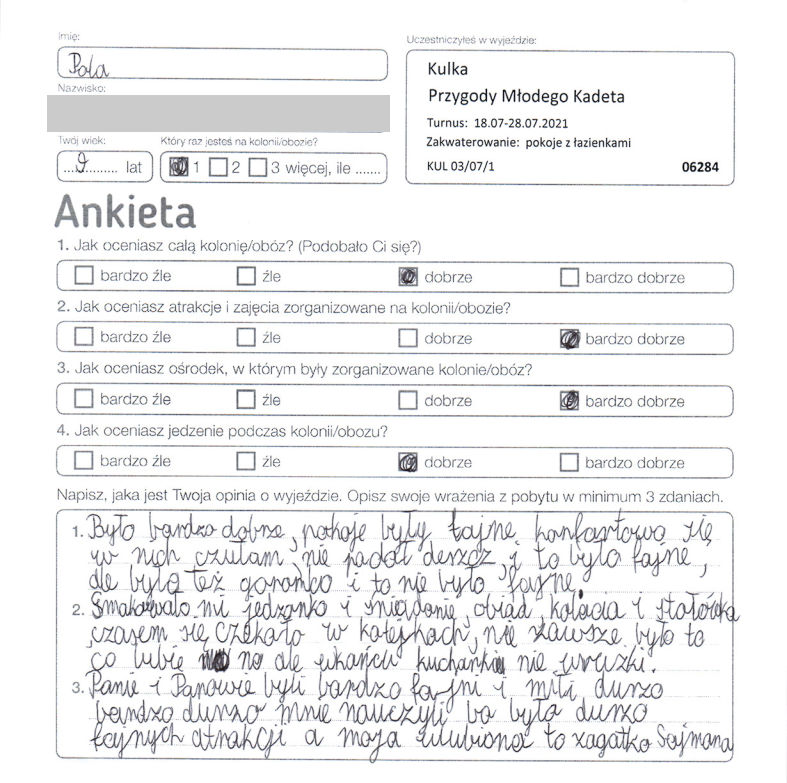 Imię:
Pola
Nazwisko:
Twój wiek:
9 lat
Który raz jesteś na kolonii/obozie?
1 2 3 więcej, ile .......
Uczestniczyłeś w wyjeździe:
Kulka
Przygody Młodego Kadeta
Turnus: 18.07-28.07.2021
Zakwaterowanie: pokoje z łazienkami
KUL 03/07/1 06284
Ankieta
1. Jak oceniasz całą kolonię/obóz? (Podobało Ci się?)
bardzo źle źle dobrze bardzo dobrze
2. Jak oceniasz atrakcje i zajęcia zorganizowane na kolonii/obozie?
bardzo źle źle dobrze bardzo dobrze
3. Jak oceniasz ośrodek, w którym były zorganizowane kolonie/obóz?
bardzo źle źle dobrze bardzo dobrze
4. Jak oceniasz jedzenie podczas kolonii/obozu?
bardzo źle źle dobrze bardzo dobrze
Napisz, jaka jest Twoja opinia o wyjeździe. Opisz swoje wrażenia z pobytu w minimum 3 zdaniach.
1. Było bardzo dobrze, pokoje były fajne, konfortowo się
w nich czułam, nie padał deszcz, i to było fajne,
ale było też gorąnco i to nie było fajne.
2. Smakowało mi jedzonko i śniadanie, obiad, kolacia i stołówka
, czasem się czekało w kolejkach, nie zawsze było to
co lubie no ale kuchanki nie wruszki.
3. Panie i Panowie byli bardzo fajni i mili dużo
bardzo dużo mnie nauczyli bo było dużo
fajnych atrakcji a moja ulubiona to zagatko Scajmana